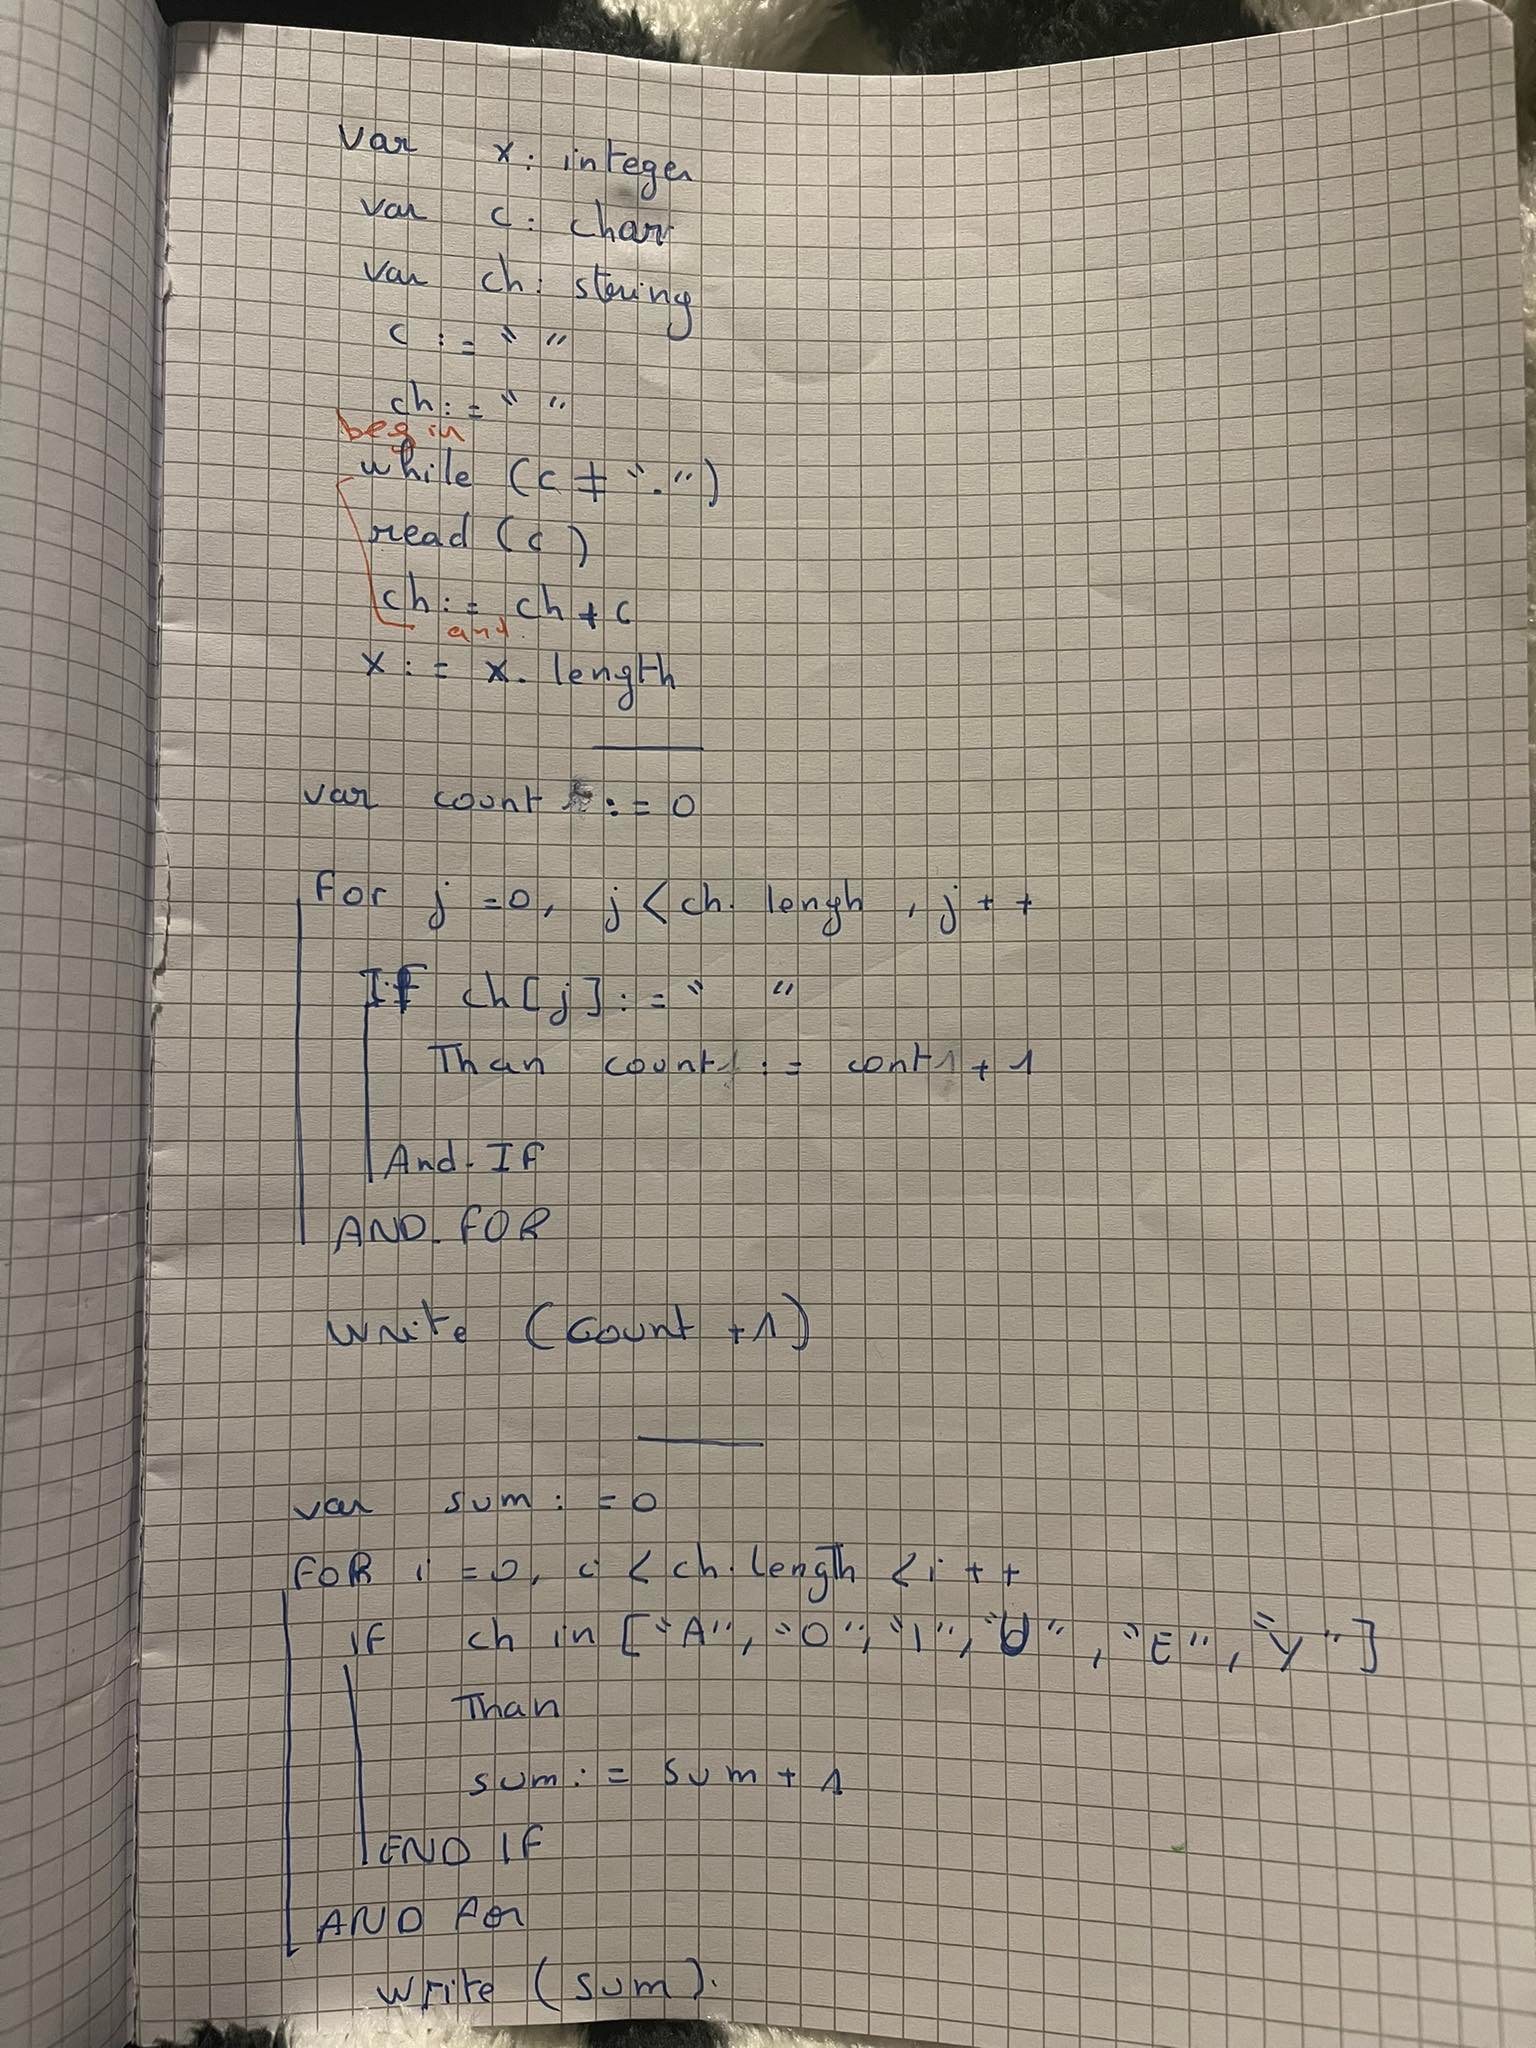 var x: integer
var c: char
var ch: string
c := " "
ch: = " "
begin
while (c ≠ ".")
read (c)
ch: = ch + c
and.
x: = x. length
var count := 0
For j =0, j < ch. lengh , j + +
IF ch [j] : = " "
Than count1 : = cont1 + 1
And. IF
AND. FOR
write (count +1)
var sum : = 0
FOR i = 0, i < ch. length < i + +
IF ch in ["A", "O", "I", "U", "E", "Y"]
Than
sum: = sum + 1
END IF
AND For
write (sum).